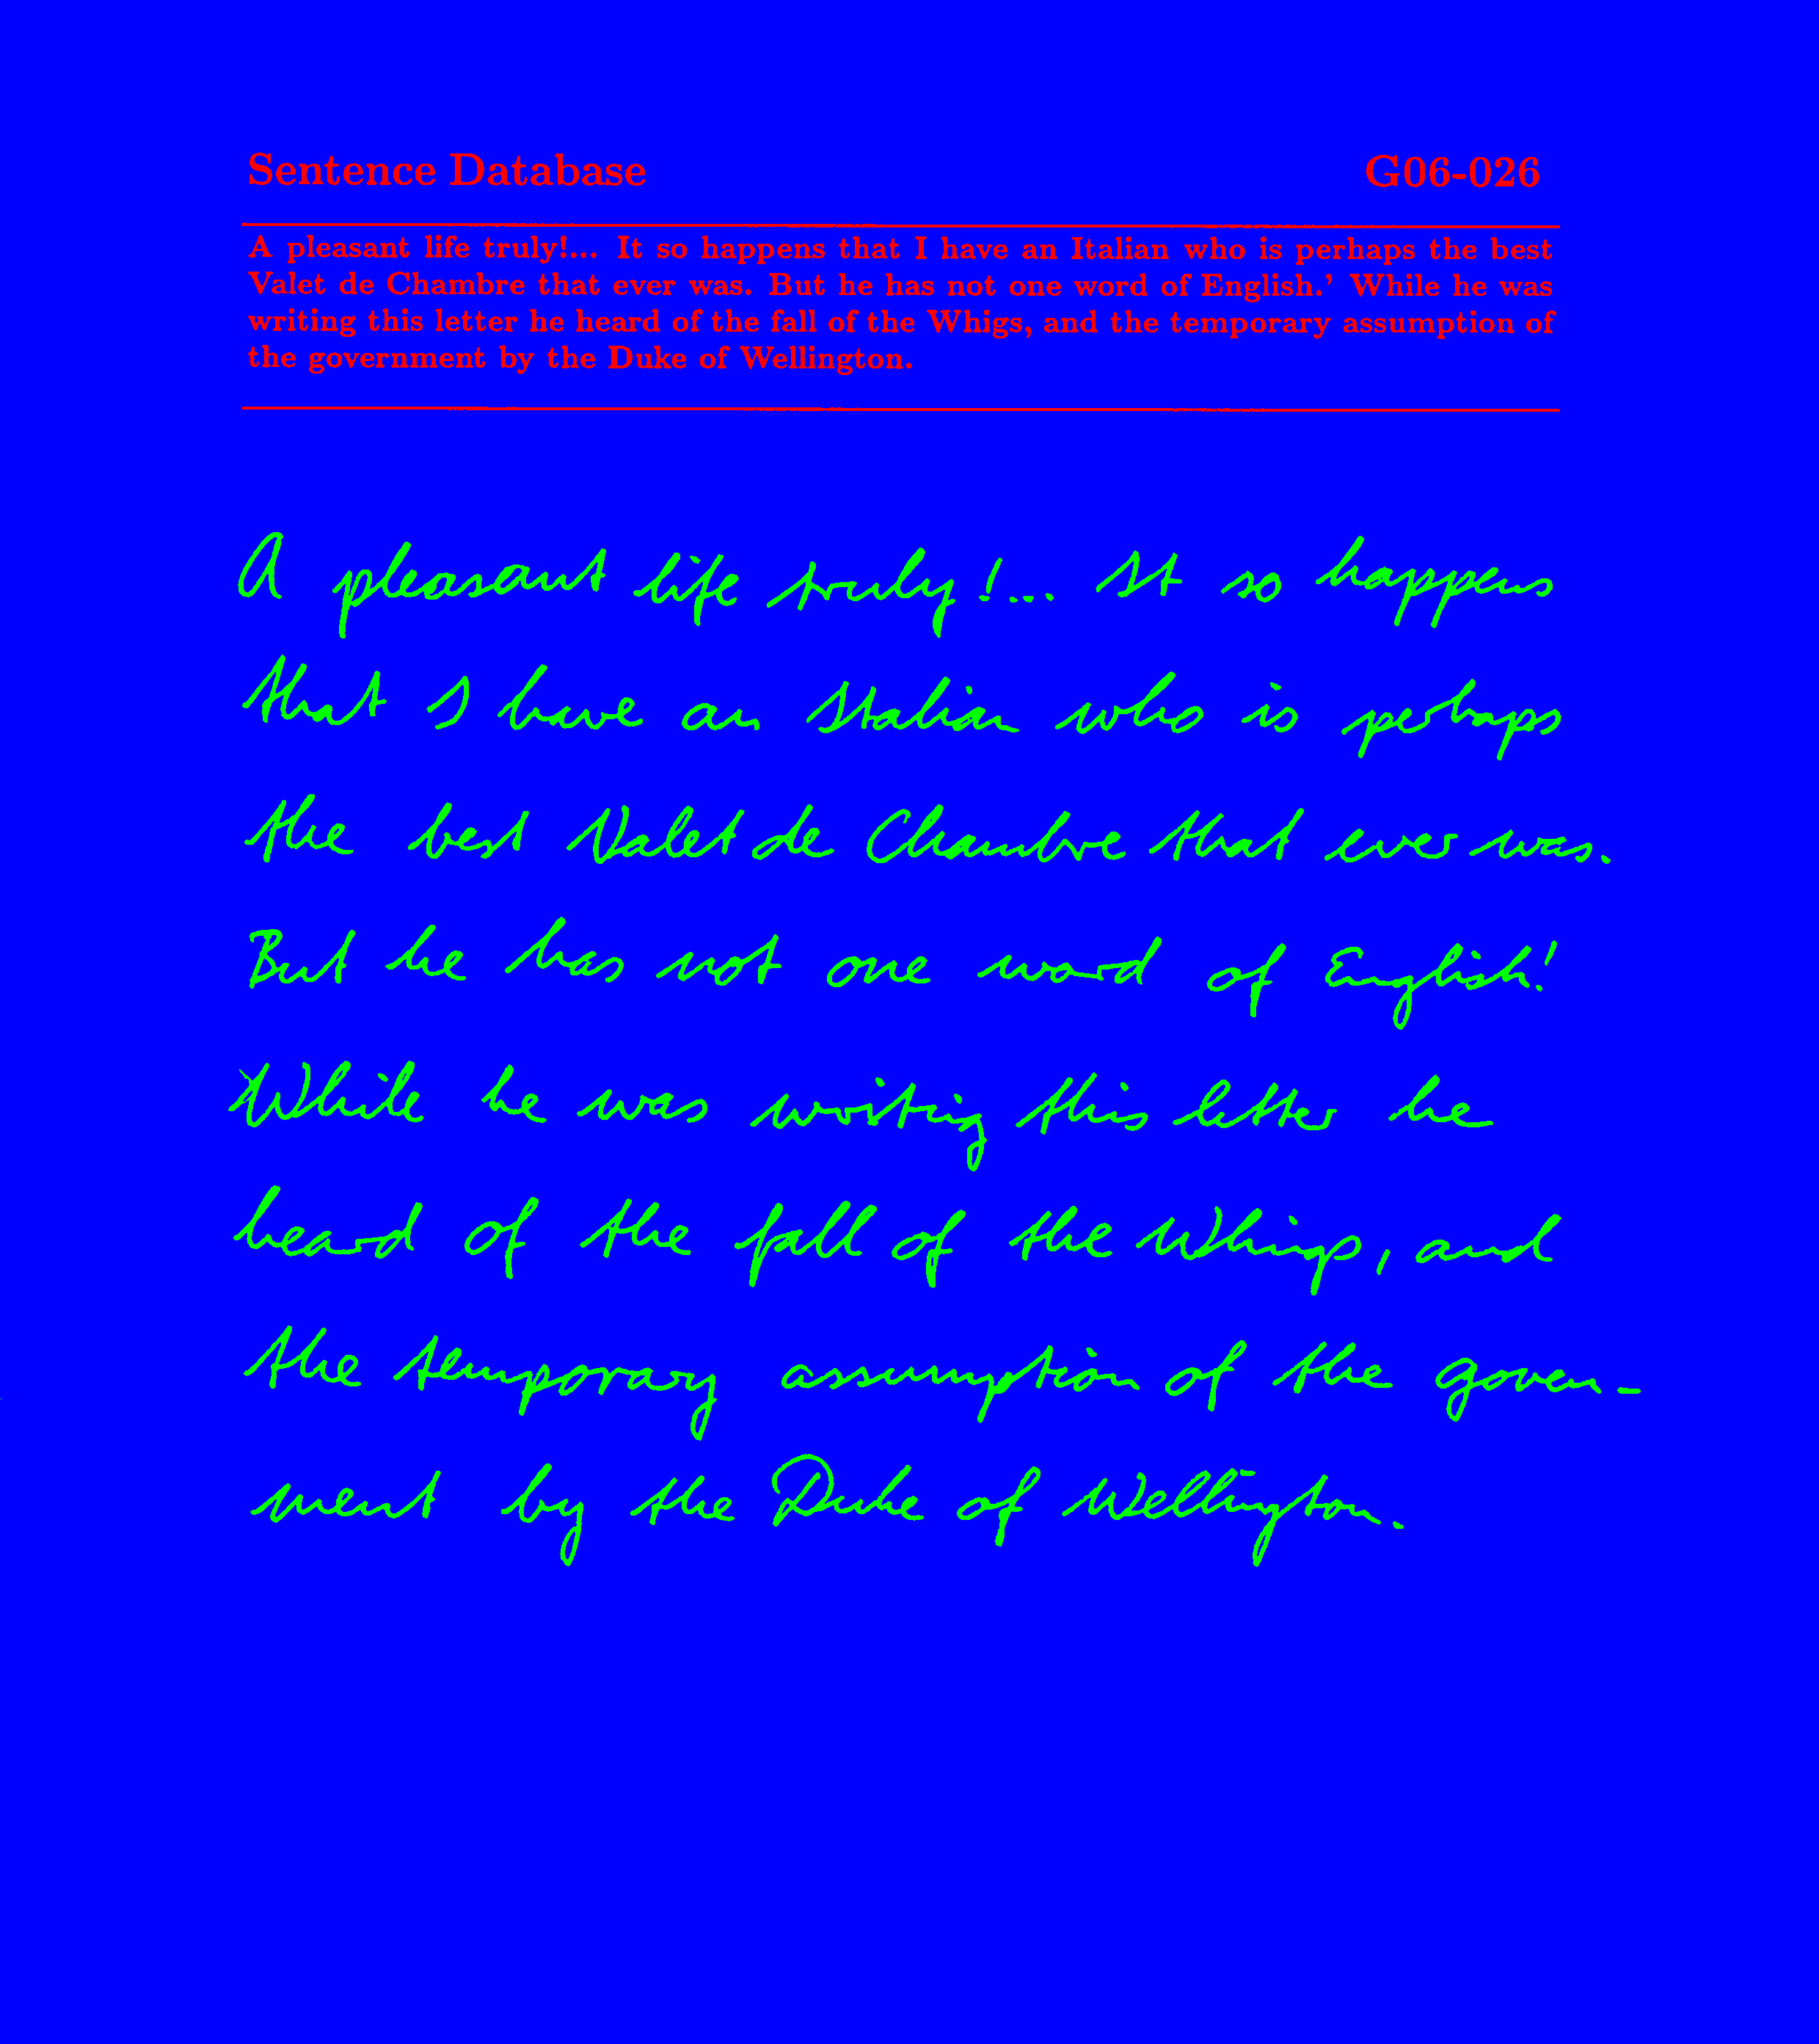 Sentence Database G06-026
A pleasant life truly!... It so happens that I have an Italian who is perhaps the best
Valet de Chambre that ever was. But he has not one word of English.' While he was
writing this letter he heard of the fall of the Whigs, and the temporary assumption of
the government by the Duke of Wellington.
A pleasant life truly!... It so happens
that I have an Italian who is perhaps
the best Valet de Chambre that ever was.
But he has not one word of English!
While he was writing this letter he
heard of the fall of the Whigs, and
the temporary assumption of the goven-
ment by the Duke of Wellington.